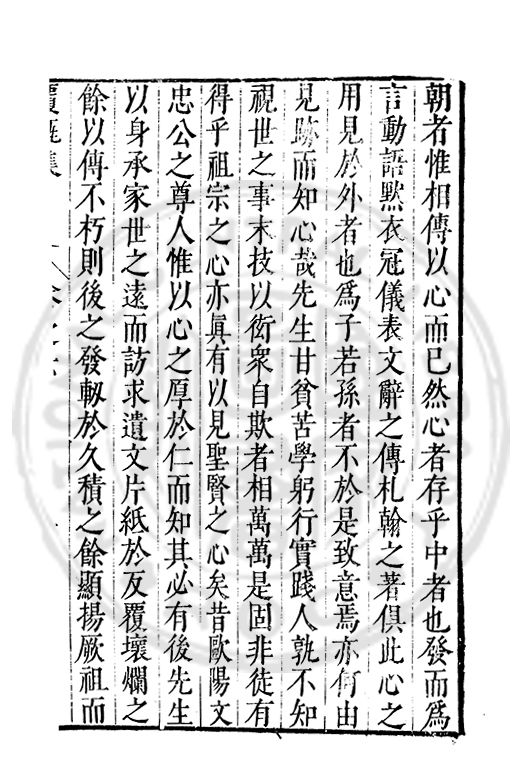 朝者惟相傳以心而已然心者存乎中者也發而爲
言動語默衣冠儀表文辭之傳札翰之著俱此心之
用見於外者也爲子若孫者不於是致意焉亦何由
見跡而知心哉先生甘貧苦學躬行實踐人孰不知
視世之事末技以衒衆自欺者相萬萬是固非徒有
得乎祖宗之心亦眞有以見聖賢之心矣昔歐陽文
忠公之尊人惟以心之厚於仁而知其必有後先生
以身承家世之遠而訪求遺文片紙於反覆壞爛之
餘以傳不朽則後之發軔於久積之餘顯揚厥祖而